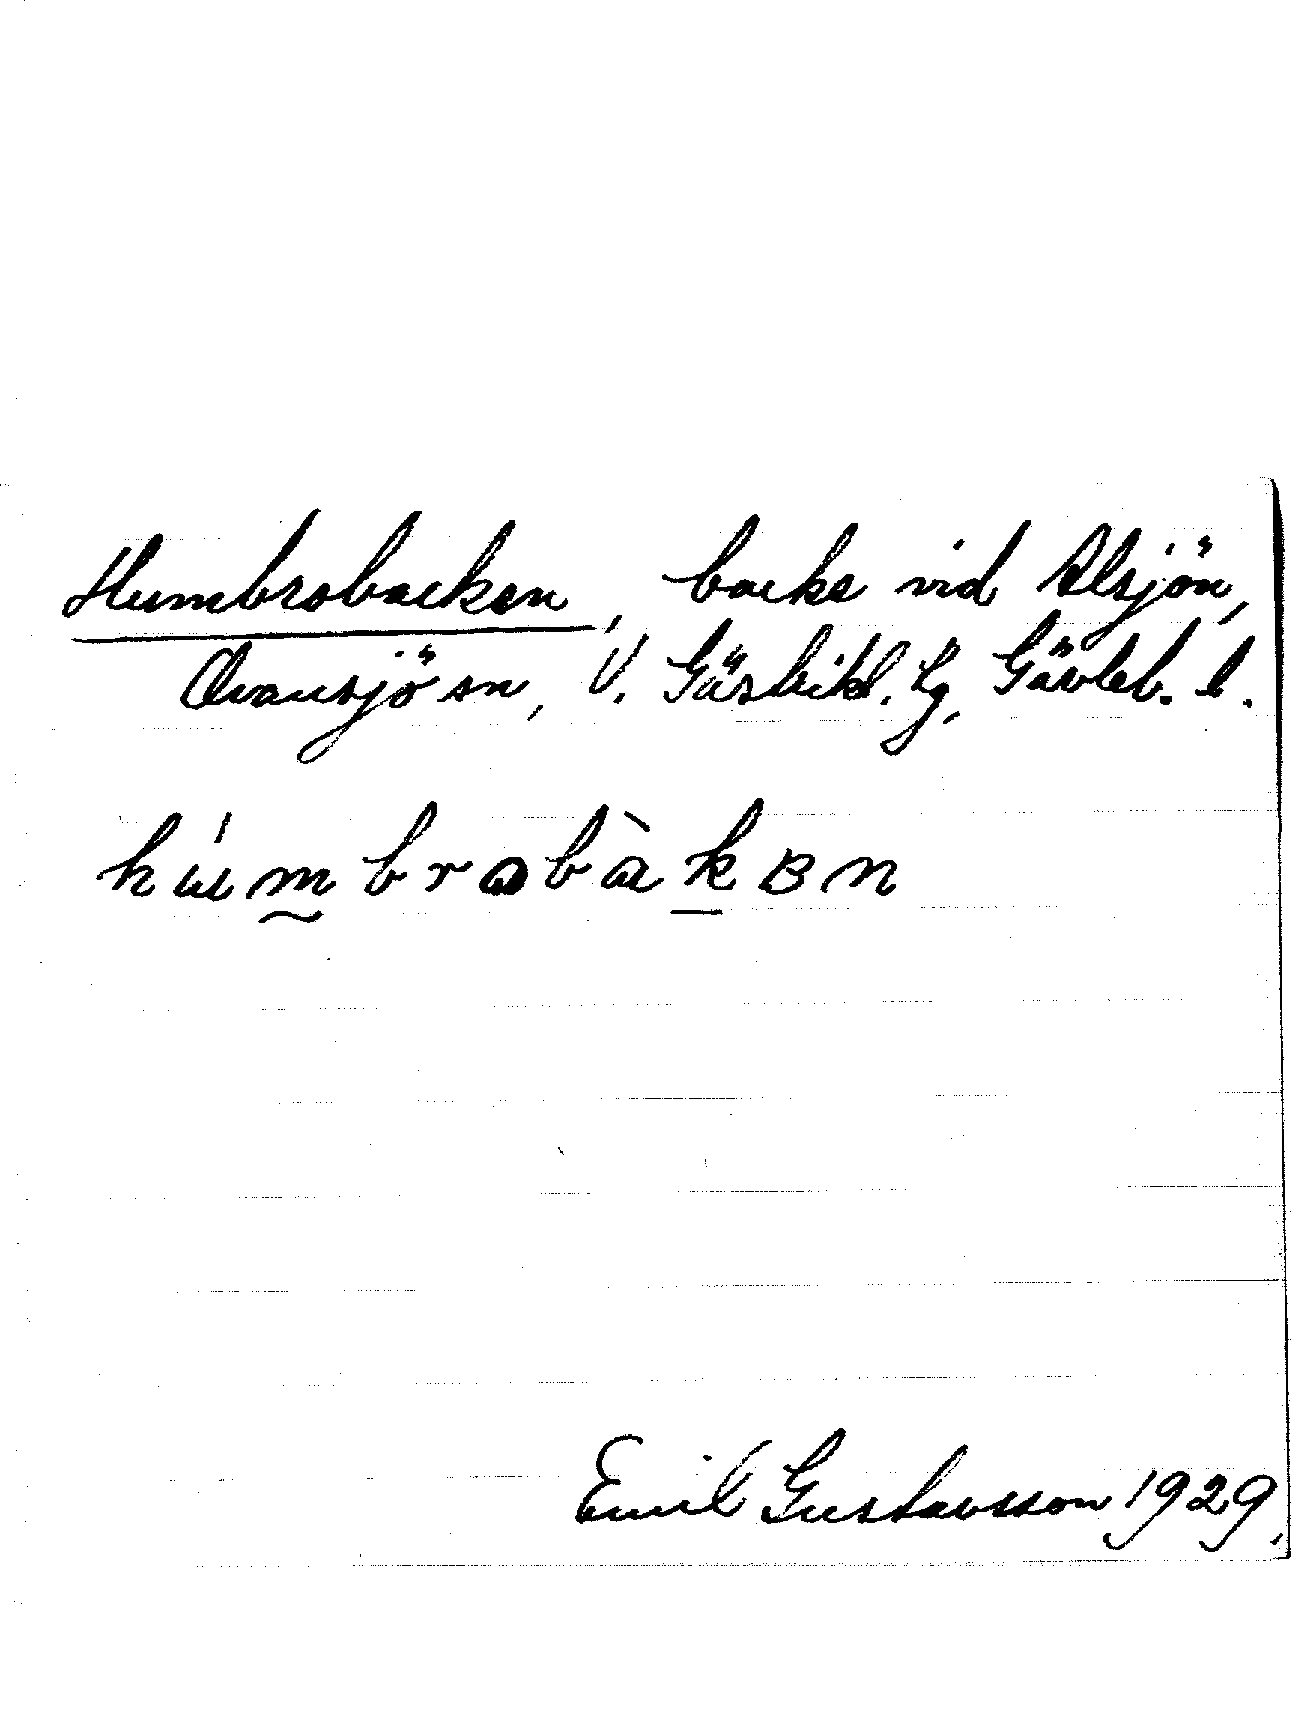 Humbrobacken, backe vid Alsjön,
Ovansjö sn, V. Gästrikl. tg, Gävleb. l.
húmbrobàkɐn
Emil Gustavsson 1929.